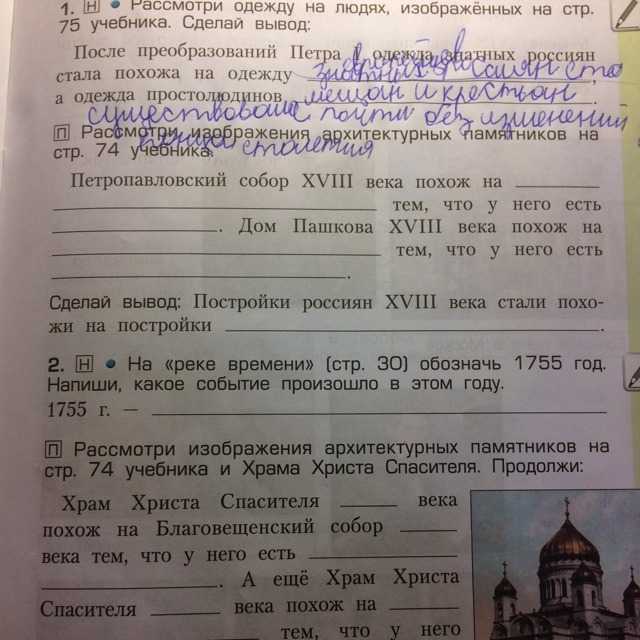 1. Н • Рассмотри одежду на людях, изображённых на стр.
75 учебника. Сделай вывод:
После преобразований Петра I одежда знатных россиян
стала похожа на одежду
знатных россиян ста
а одежда простолюдинов мещан и крестьян
существовала почти без изменений
П Рассмотри изображения архитектурных памятников на
столетия
стр. 74 учебника.
Петропавловский собор XVIII века похож на
тем, что у него есть
. Дом Пашкова XVIII века похож на
тем, что у него есть
.
Сделай вывод: Постройки россиян XVIII века стали похо-
жи на постройки .
2. Н • На «реке времени» (стр. 30) обозначь 1755 год.
Напиши, какое событие произошло в этом году.
1755 г. —
П Рассмотри изображения архитектурных памятников на
стр. 74 учебника и Храма Христа Спасителя. Продолжи:
Храм Христа Спасителя века
похож на Благовещенский собор
века тем, что у него есть
. А ещё Храм Христа
Спасителя века похож на
тем, что у него